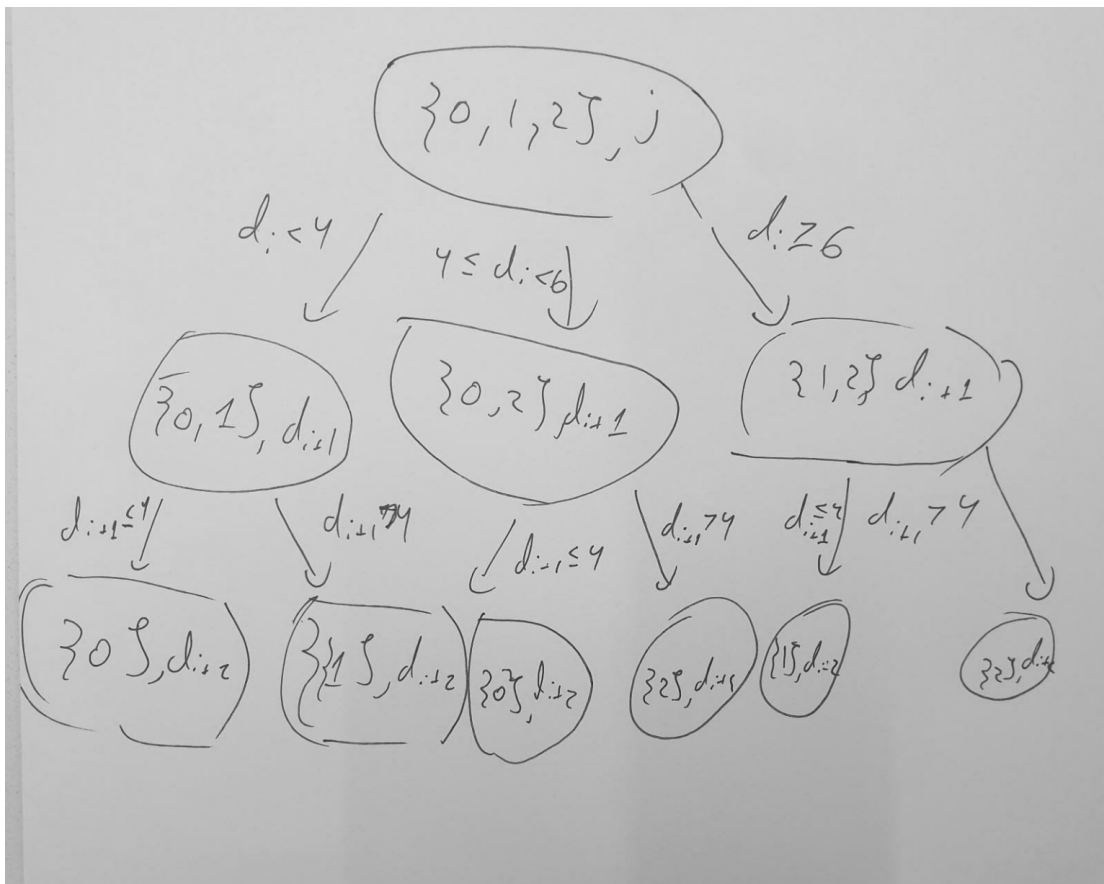 {0,1,2}, j
di<4
4≤di<6
di≥6
{0,1}, di+1
{0,2}, di+1
{1,2} di+1
di+1≤4
di+1>4
di+1≤4
di+1>4
di+1≤4
di+1>4
{0}, di+2
{1}, di+2
{0}, di+2
{2}, di+2
{1}, di+2
{2}, di+2